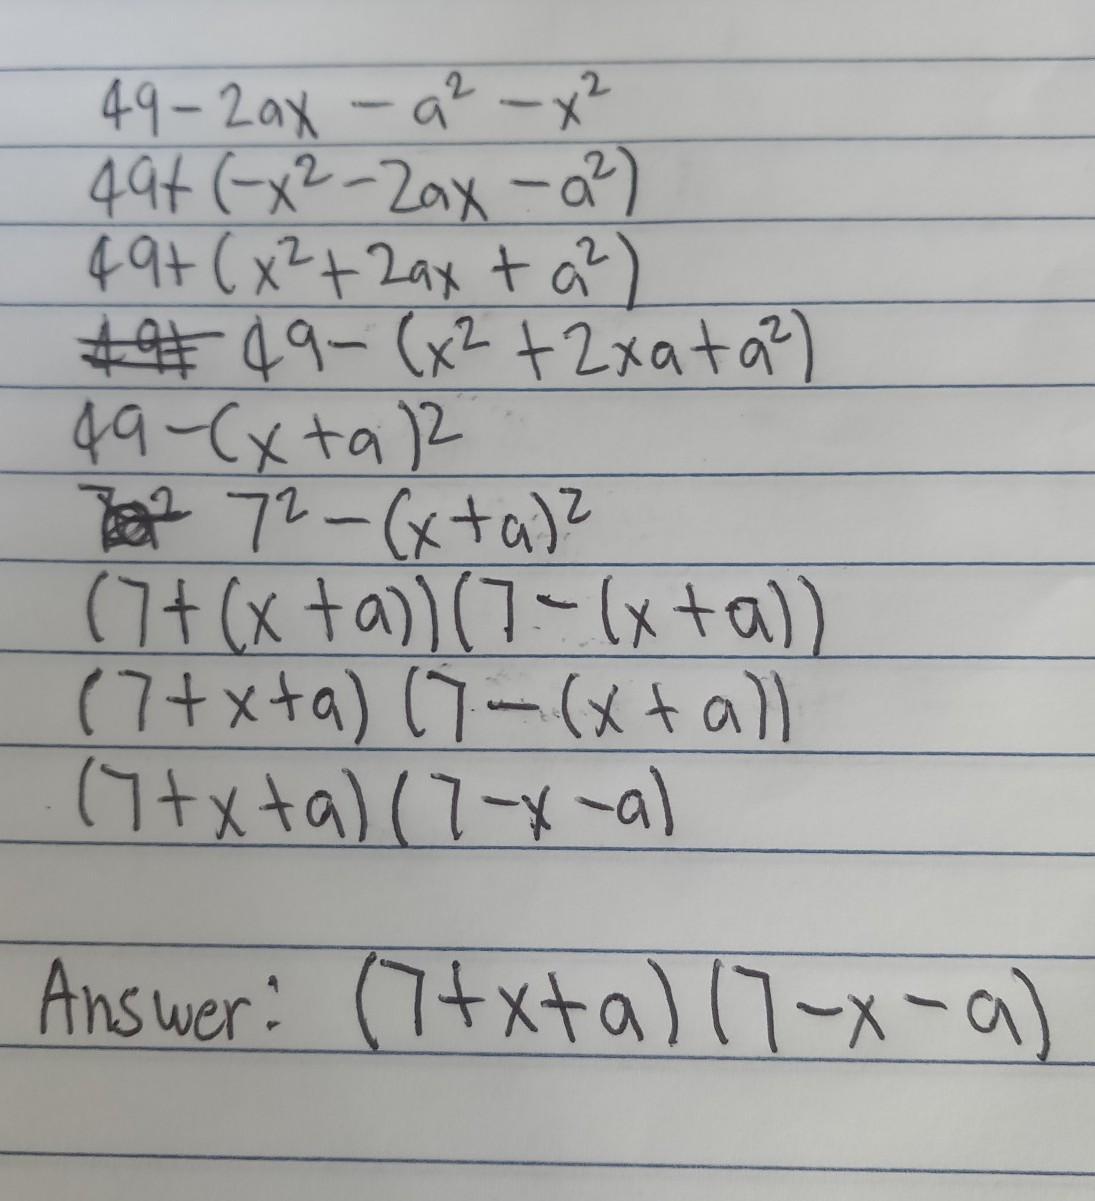 49 - 2ax - a² - x²
49 + (-x² - 2ax - a²)
49 + (x² + 2ax + a²)
49 - (x² + 2xa + a²)
49 - (x + a)2
7² - (x + a)²
(7 + (x + a))(7 - (x + a))
(7 + x + a) (7 - (x + a))
(7 + x + a) (7 - x - a)
Answer: (7 + x + a) (7 - x - a)